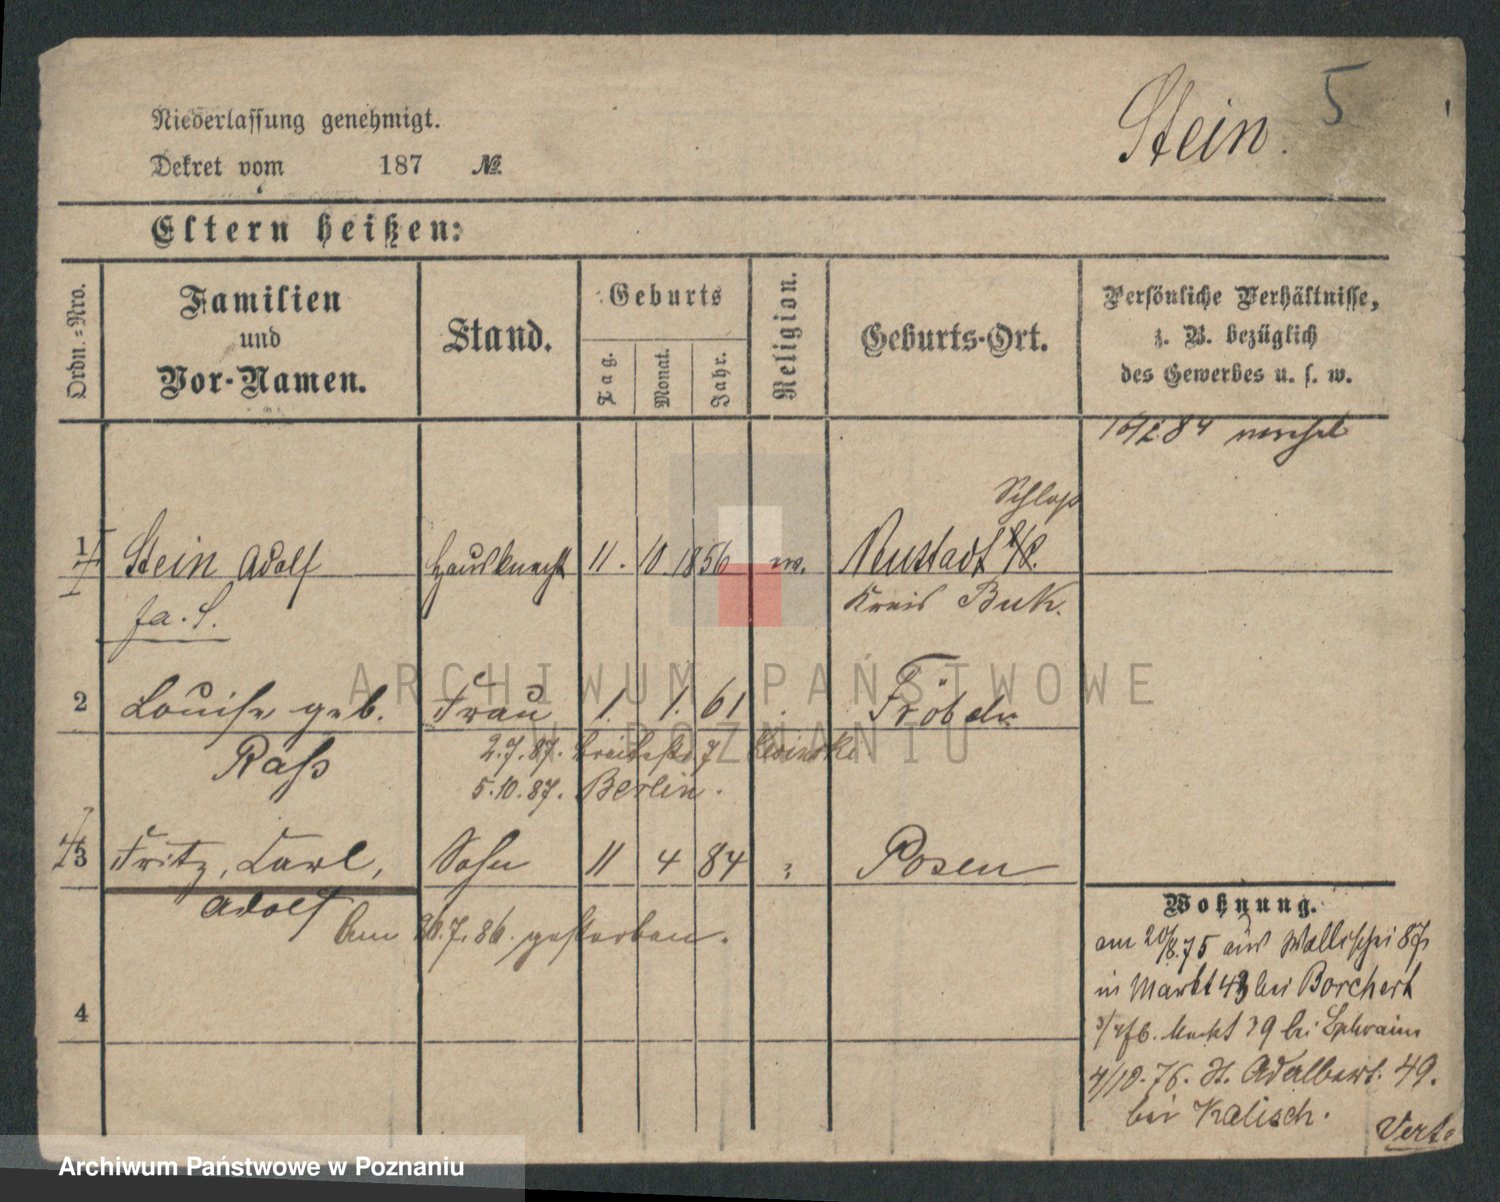 Stein. 5
Niederlassung genehmigt.
Dekret vom 187 №
Eltern heißen:
Ordn.=Nro.
Familien
und
Vor-Namen.
Stand.
Geburts
Tag.
Monat.
Jahr.
Religion.
Geburts-Ort.
Persönliche Verhältnisse,
z. B. bezüglich
des Gewerbes u. s. w.
Schloß
1 Stein Adolf Hausknecht 11. 10. 1856 ev. Neustadt
Kreis Buk.
2 Louise geb. Frau 1. 1. 61
Raß
2.7.87.
5.10.87. Berlin.
3 Fritz, Carl, Sohn 11 4 84 Posen
Adolf
Am 7.86. gestorben.
4
Wohnung.
am 20/8.75 aus Wallischei 87
in Markt bei Borchert
Markt 79 bei Ephraim
4/10.76. St. Adalbert. 49.
bei Kalisch.
Verte
ARCHIWUM PAŃSTWOWE
W POZNANIU
Archiwum Państwowe w Poznaniu